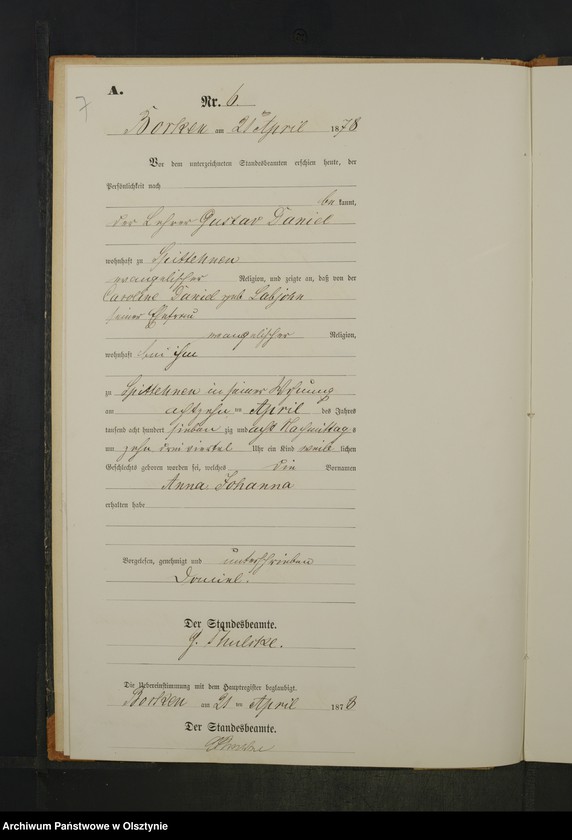 7
A.
Nr. 6.
Borken am 21 April 1878
Vor dem unterzeichneten Standesbeamten erschien heute, der
Persönlichkeit nach
be kannt,
der Lehrer Gustav Daniel
wohnhaft zu
evangelischer Religion, und zeigte an, daß von der
Caroline Daniel geb Labjohn
seiner Ehefrau
evangelischer Religion,
wohnhaft bei ihm
zu in seiner Wohnung
am achtzehn ten April des Jahres
tausend acht hundert sieben zig und acht Nachmittag s
um zehn drei viertel Uhr ein Kind weib lichen
Geschlechts geboren worden sei, welches die Vornamen
Anna Johanna
erhalten habe
Vorgelesen, genehmigt und unterschrieben
Daniel.
Der Standesbeamte.
Die Uebereinstimmung mit dem Hauptregister beglaubigt.
Borken am 21 ten April 1878
Der Standesbeamte.
Archiwum Państwowe w Olsztynie